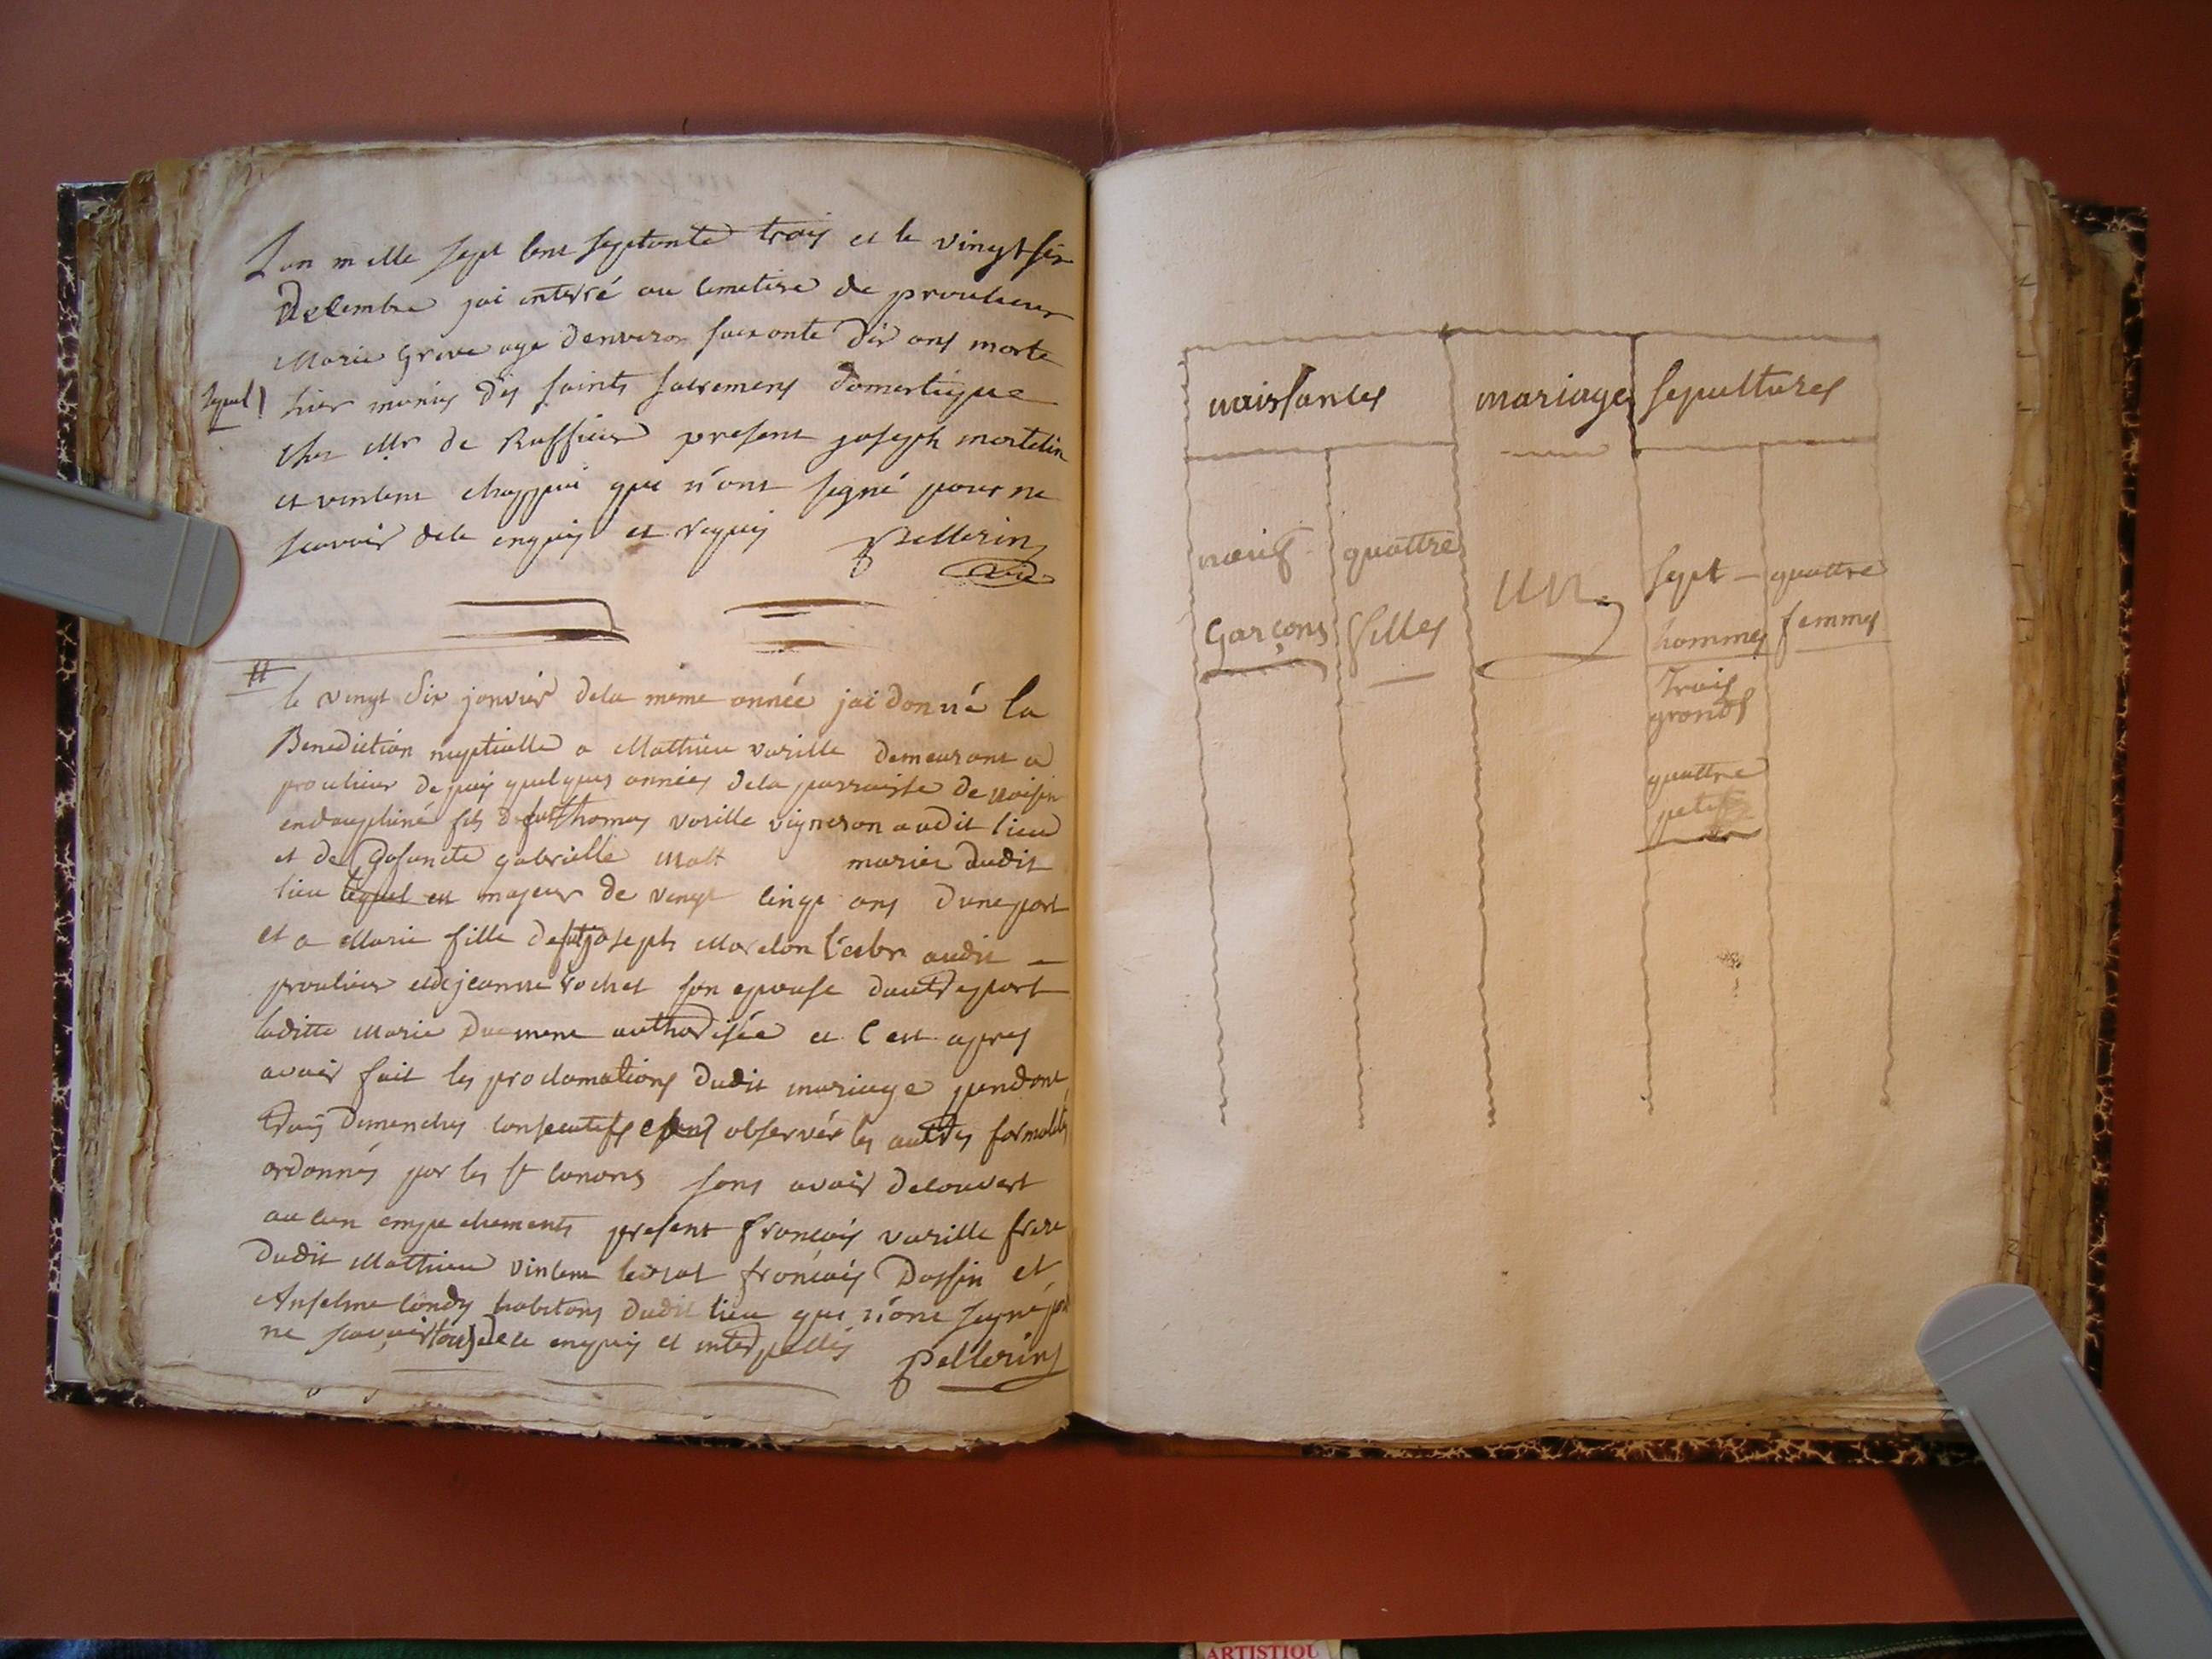 Lan mille sept cent septante trois et le vingt six
Decembre jai enterré au cimetiere de proulieu
Marie Greve age denviron soixonte dix ans morte
sepul
hier munies des saints sacremens domestique
chez Mr de Ruffieu present joseph martelin
et vincent chappui que n'ont signé pour ne
scavoir de ce enquis et requis
Pellerin
curé
le vingt six janvier dela meme année jai donné la
Benediction nuptialle a Mathieu varille demeurant a
proulieu depuis quelques années dela parroisse de
endauphiné fils defeu thomas varille vigneron audit lieu
et de defuncte gabrielle Matt mariés dudit
lieu lequel est majeur de vingt cinq ans dune part
et a Marie fille defeu joseph Marelon audit
proulieu et de jeanne rochet son epouse dautre part
laditte Marie duement authorisée et c est apres
avoir fait les proclamations dudit mariage pendant
trois dimenches consecutifs observér les autres formalités
ordonnés par les st canons sans avoir decouvert
aucun empechements present francois varille frere
dudit Mathieu vincent francois Dossin et
Anselme habitans dudit lieu que n'ont signé
ne scavoir tous de ce enquis et interpellés
Pellerin
naissances mariages sepultures
neuf garçons
quattre filles
un
sept hommes
quattre femmes
trois
grands
quattre
petits
ARTISTIQU